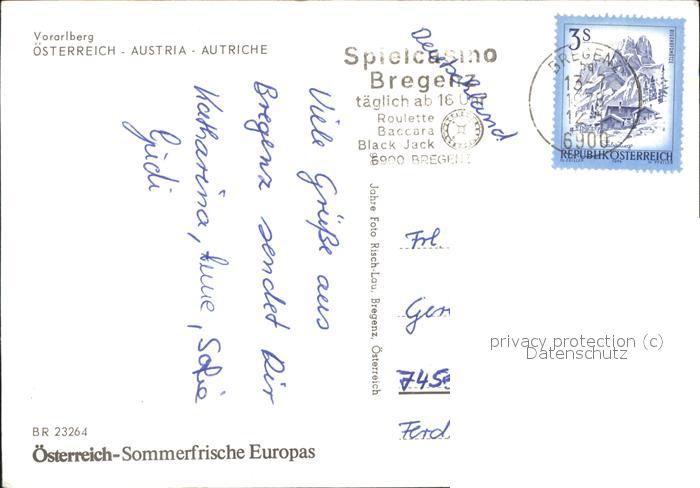 Vorarlberg
ÖSTERREICH - AUSTRIA - AUTRICHE
Viele Grüße aus
Bregenz sendet Dir
Katharina, Anne, Sofie
Gidi
BR 23264
Österreich-Sommerfrische Europas
Jahre Foto Risch-Lau, Bregenz, Österreich
Spielcasino
Bregenz
täglich ab 16 U
Roulette
Baccara
Black Jack
6900 BREGENZ
Deutschland
BREGENZ
13
12
6900
3 S
REPUBLIK ÖSTERREICH
Frl.
Ger
745
Ferd
privacy protection (c)
Datenschutz